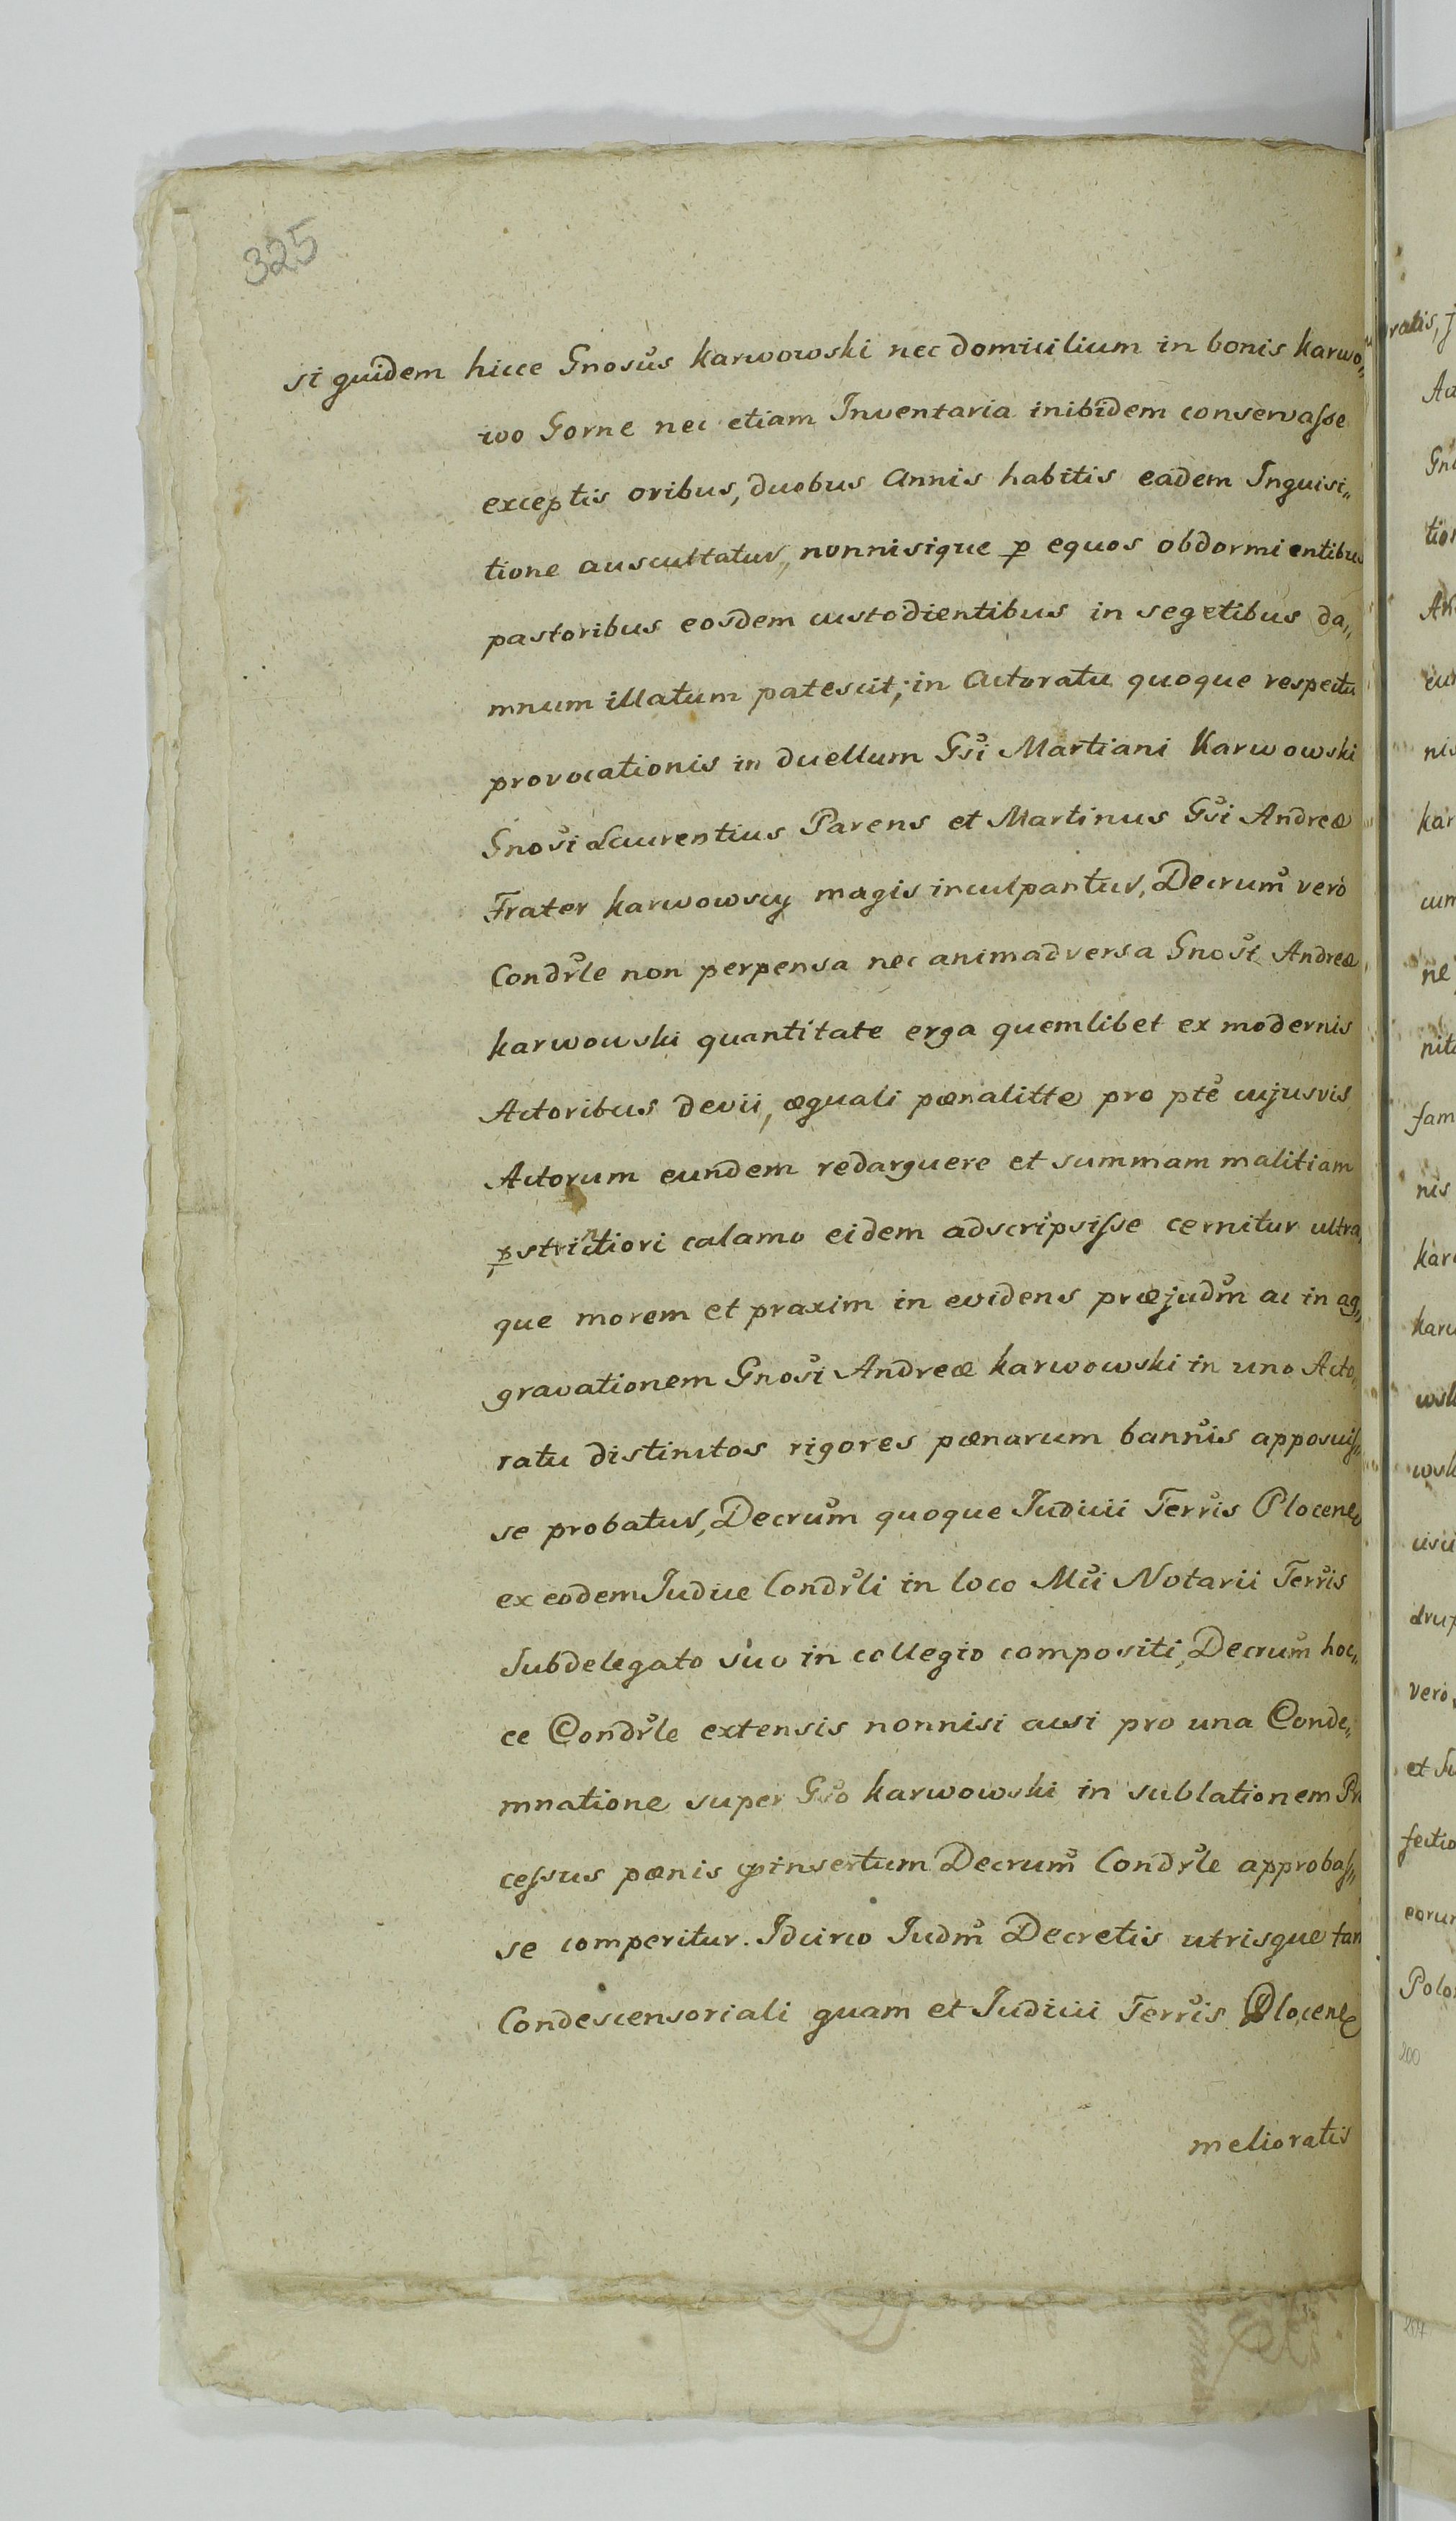 325
si quidem hicce Gnosus Karwowski nec domicilium in bonis Karwo„
wo Gorne nec etiam Inventaria inibidem conservasse
exceptis oribus, duobus Annis habitis eadem Inquisi„
tione auscultatur, nonnisique p equos obdormientibus
pastoribus eosdem custodientibus in segetibus da„
mnum illatum patescit; in Actoratu quoque respectu
provocationis in duellum Gsi Martiani Karwowski
Gnosi Laurentius Parens et Martinus Gsi Andreæ
Frater Karwowscy magis inculpantur, Decrum vero
Condrle non perpensa nec animadversa Gnosi Andreæ
Karwowski quantitate erga quemlibet ex modernis
Actoribus devii, æquali pœnalitte pro pte cujusvis
Actorum eundem redarguere et summam malitiam
pstrinctiori calamo eidem adscripsisse cernitur ultra„
que morem et praxim in evidens præjudm ac in ag„
gravationem Gnosi Andreæ Karwowski in uno Acto„
ratu distinctos rigores pœnarum bannis apposuis„
se probatur, Decrum quoque Judicii Terris Plocene
ex eodem Judice Condrli in loco Mci Notarii Terris
Subdelegato suo in collegio compositi, Decrum hoc„
ce Condrle extensis nonnisi ausi pro una Conde„
mnatione super Gso Karwowski in sublationem Pro
cessus pœnis insertum Decrum Condrle approbas„
se comperitur. Idcirco Judm Decretis utrisque tam
Condescensoriali quam et Judicii Terris Plocene
melioratis